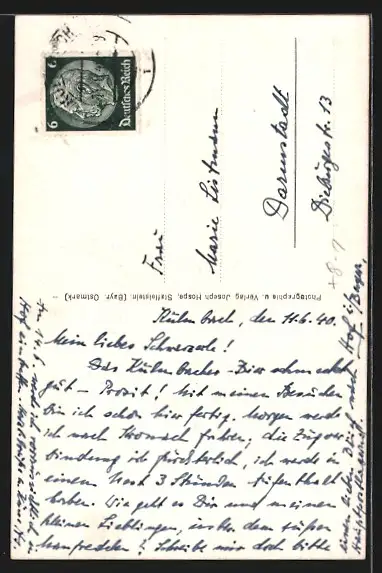 Deutsches Reich
6 6
Frau
Marie
Darmstadt
Dieburgerstr. 13
Photographie u. Verlag Joseph Hospe, Staffelstein. (Bayr. Ostmark)
Kulmbach, den 11.6.40.
Mein liebes
Das Kulmbacher-Bier schmeckt
gut – Prosit! Mit meinen Besuchen
bin ich schon hier fertig. Morgen werde
ich nach Kronach fahren, die Zugver-
bindung ist fürchterlich, ich werde in
einem Nest 3 Stunden Aufenthalt
haben. Wie geht es Dir und meinen
kleinen Lieblingen, unter dem süßen
Schreibe mir doch bitte
nach Hof i/Bayer.
Am 14.6. werde ich voraussichtlich in
Hof